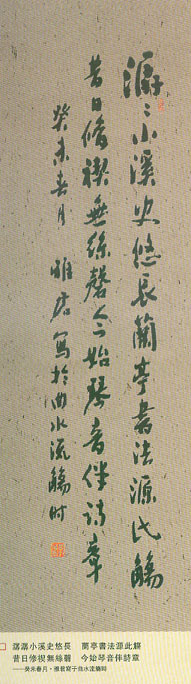 潺潺小溪史悠長蘭亭書法源民觴
昔日脩禊無絲磬今始琴音伴詩章
癸未春月 雅君寫於曲水流觴时
潺潺小溪史悠長 蘭亭書法源此觴
昔日修禊無絲磬 今始琴音伴詩章
——癸未春月·雅君寫于曲水流觴時